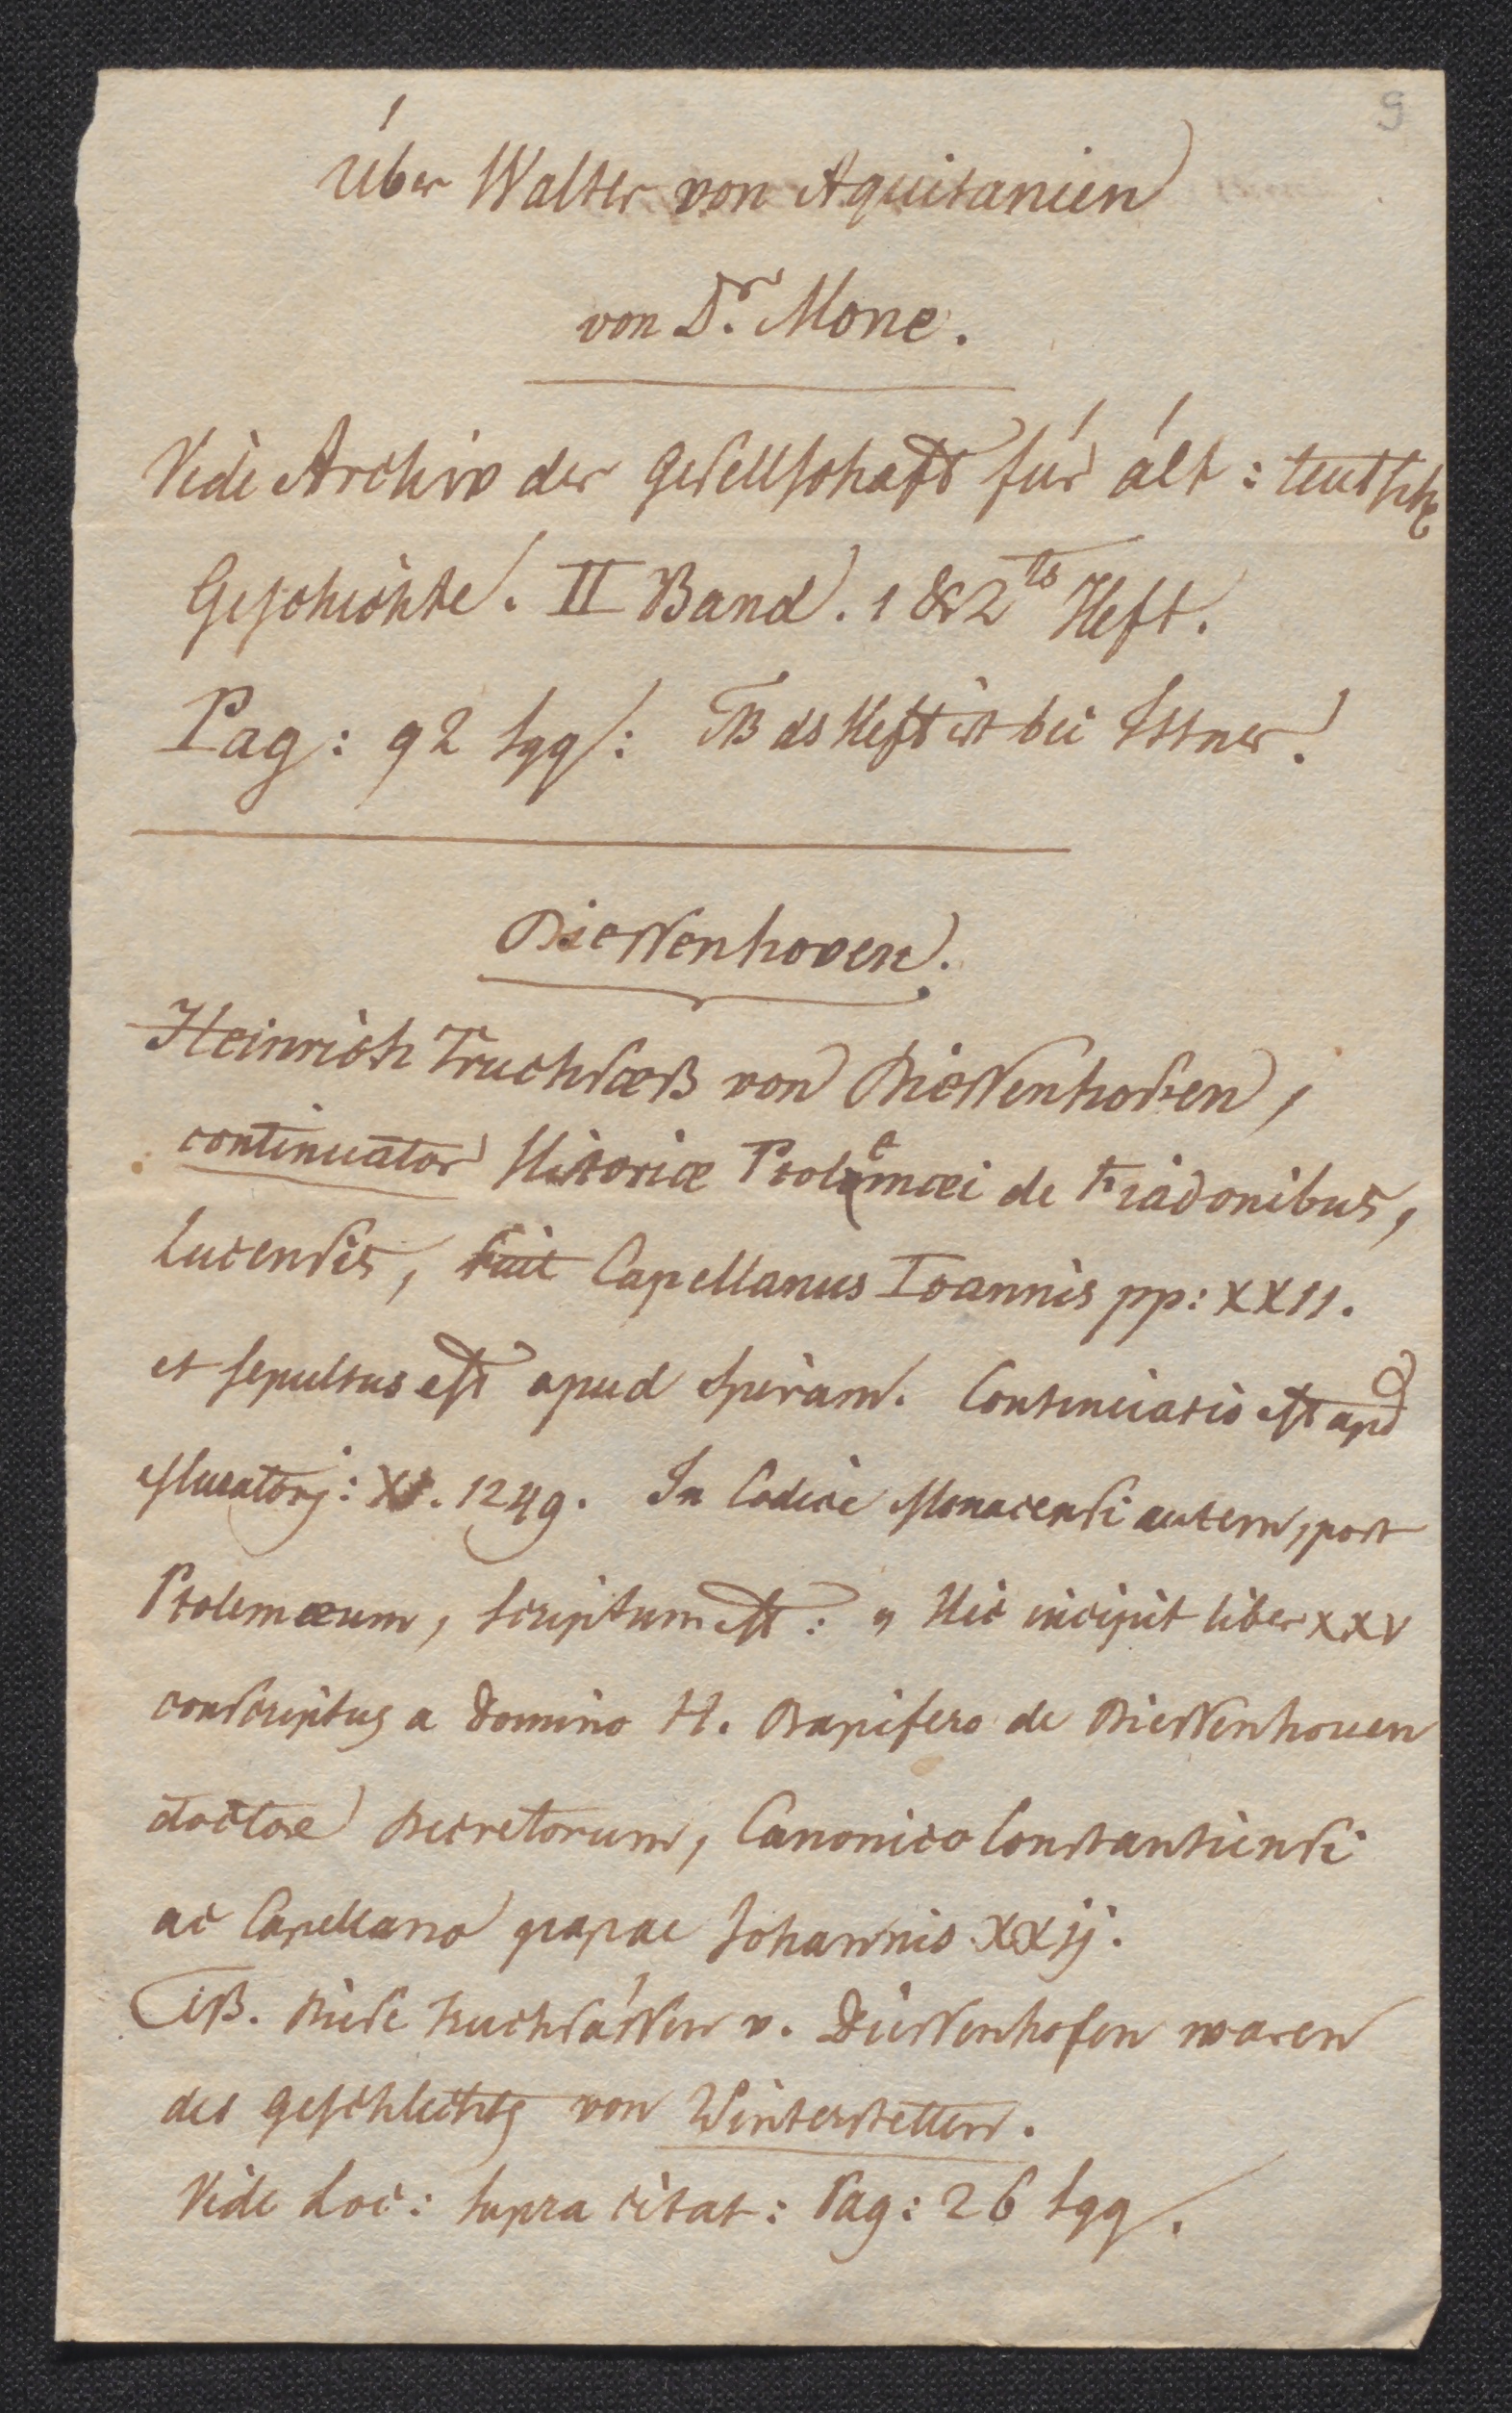 9
Über Walter von Aquitanien
von Dr. Mone.
Vide Archiv der Gesellschaft für ält: teutsche
Geschichte. II Band. 1 & 2ts Heft.
Pag: 92 sqq: NB ds Heft ist bei Ittner.
Diessenhoven.
Heinrich Truchsæß von Diessenhofen,
continuator Historiæ Ptolemæi de Fiadonibus,
Lucensis, fuit Capellanus Ioannis pp: XXII.
et sepultus est apud Spiram. Continuatio est apd
Muratorj: XI. 1249. In Codice Monacensi autem, post
Ptolemæum, scriptum est: „ Hic incipit liber XXV
conscriptus a Domino H. Dapifero de Diessenhouen
doctore Decretorum, Canonico Constantiensi
ac Capellano papae Johannis XXIJ.
NB. diese Truchsässen v. Diessenhofen waren
des Geschlechts von Winterstetten.
Vide Loc: supra citat: Pag: 26 sqq.